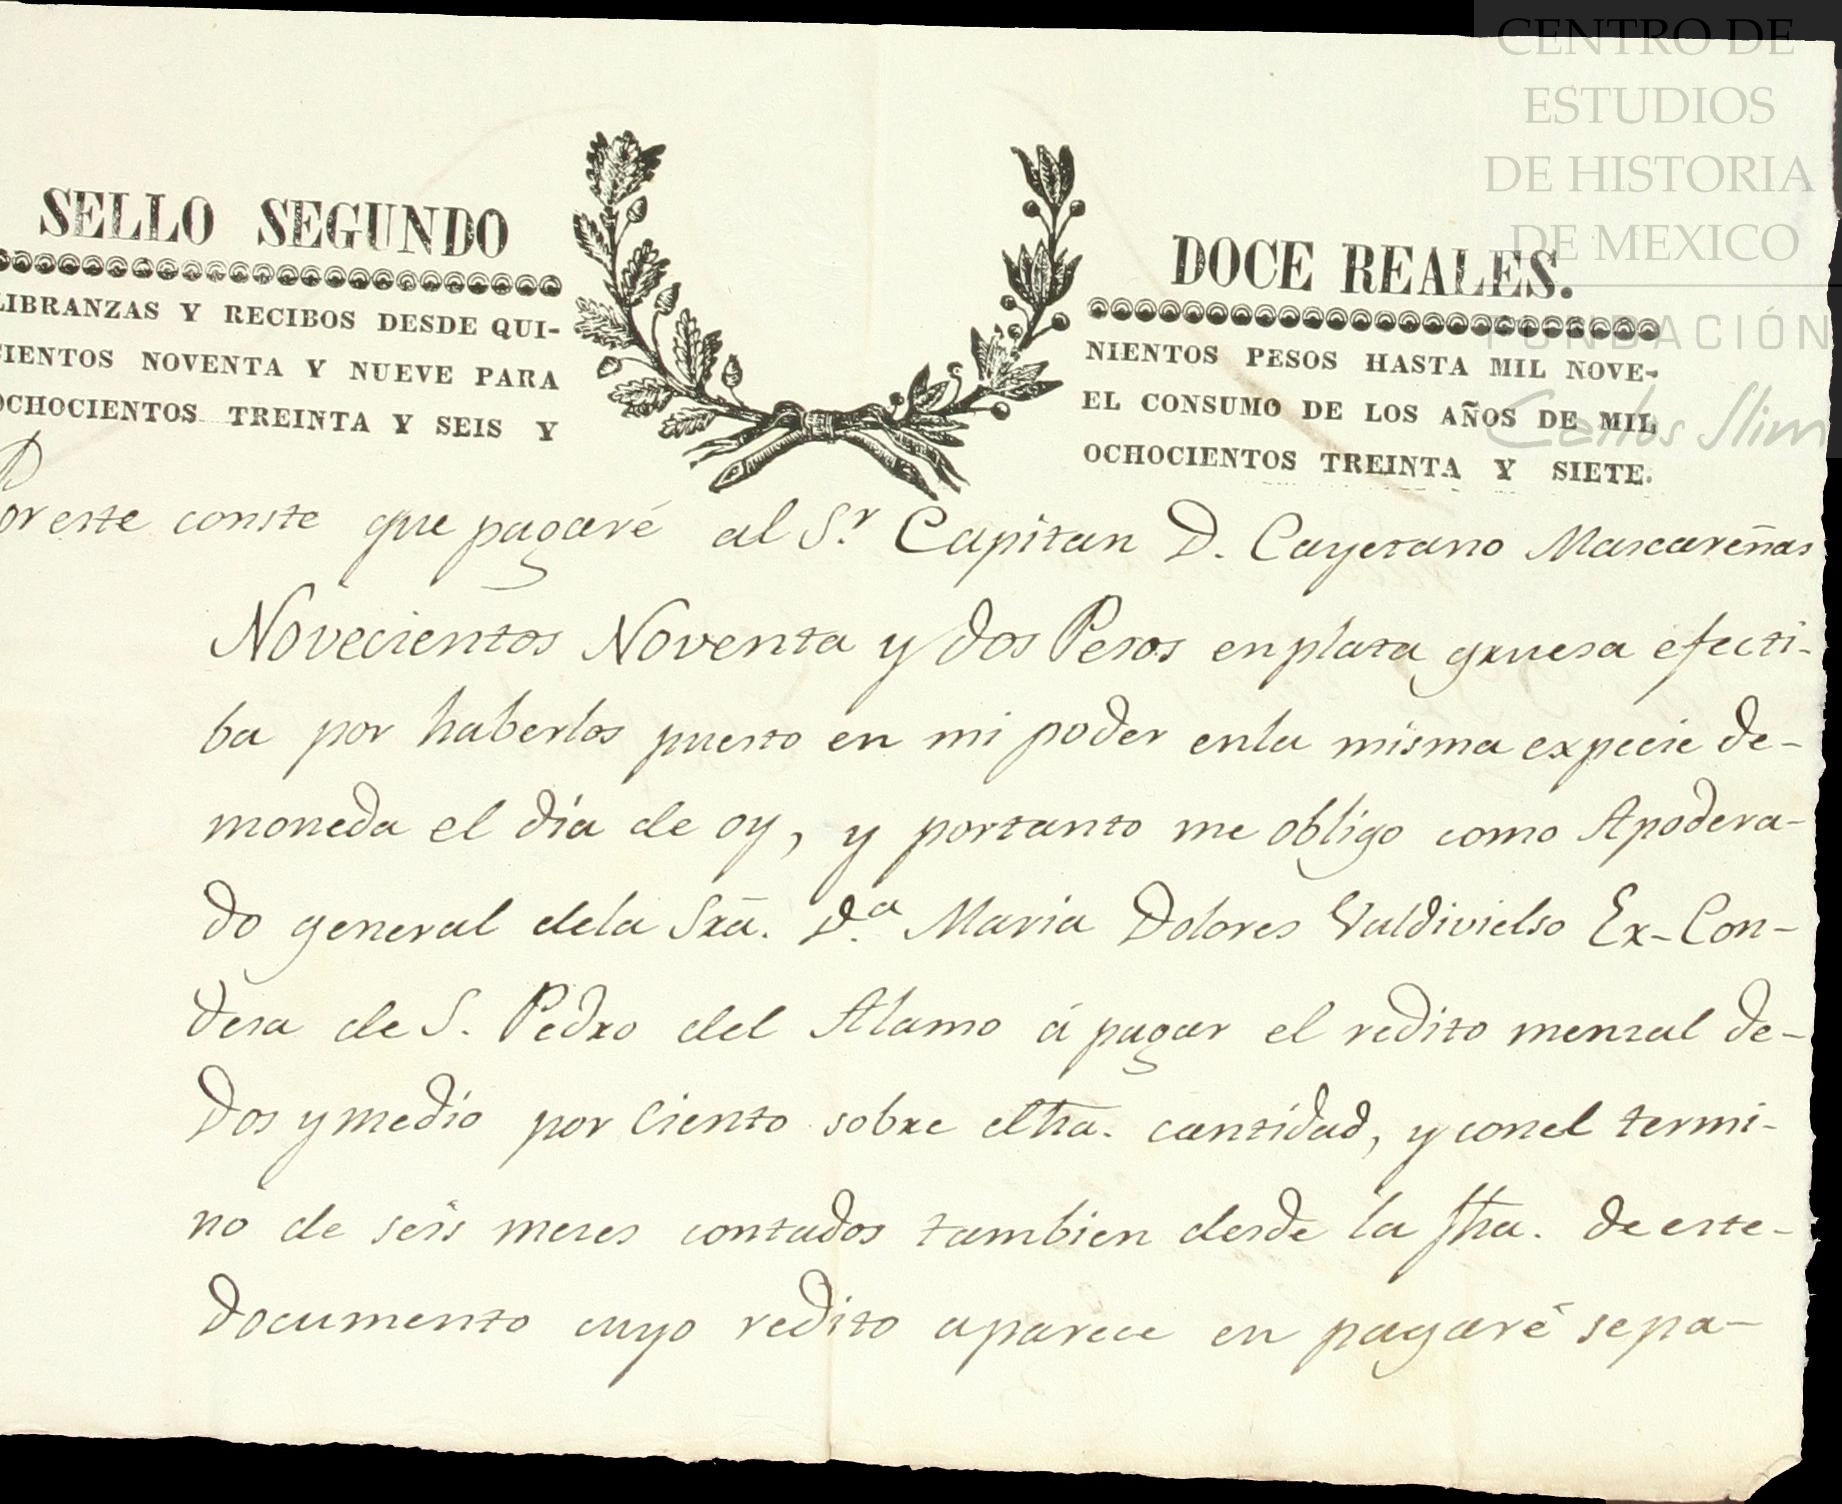 CENTRO DE
ESTUDIOS
DE HISTORIA
DE MEXICO
FUNDACIÓN
Carlos Slim
SELLO SEGUNDO
DOCE REALES.
LIBRANZAS Y RECIBOS DESDE QUI-
NIENTOS PESOS HASTA MIL NOVE-
CIENTOS NOVENTA Y NUEVE PARA
EL CONSUMO DE LOS AÑOS DE MIL
OCHOCIENTOS TREINTA Y SEIS Y
OCHOCIENTOS TREINTA Y SIETE.
Por este conste que pagaré al Sr. Capitan D. Cayetano Mascareñas
Novecientos Noventa y dos Pesos en plata gruesa efecti-
ba por haberlos puesto en mi poder enla misma expecie de-
moneda el día de oy, y portanto me obligo como Apodera-
do general dela Sra. D.a Maria Dolores Valdivielso Ex-Con-
desa de S. Pedro del Alamo á pagar el redito mensal de-
dos y medio por Ciento sobre dha. cantidad, y conel termi-
no de seis meses contados tambien desde la fha. de este-
documento cuyo redito aparece en pagaré sepa-